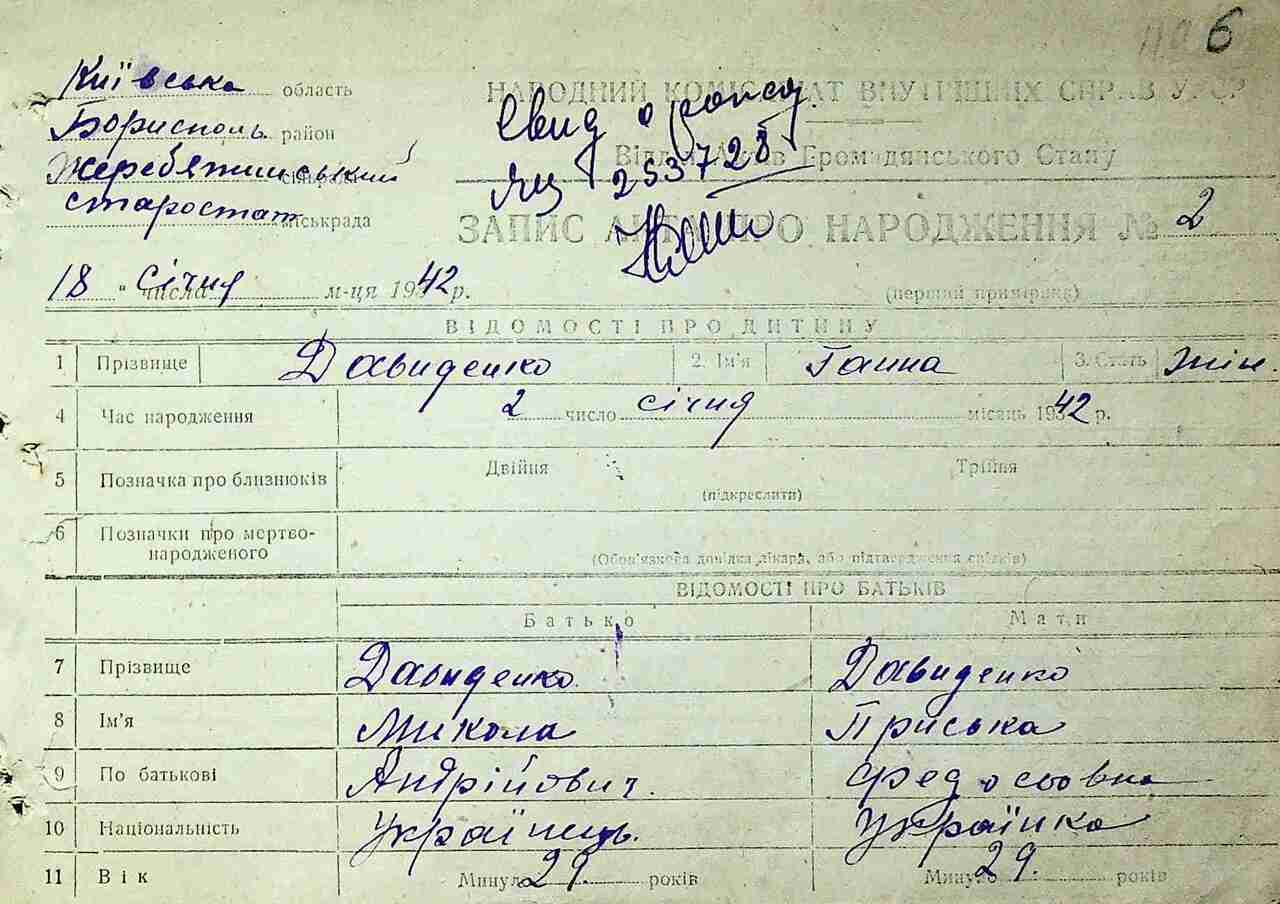 6
Київська область
НАРОДНИЙ КОМІСАРІАТ ВНУТРІШНІХ СПРАВ УРСР
Бориспіль район
Свид о рожд.
Відділ Актів Громадянського Стану
Жереб'ятинський сільрада
ЯЦ 253728
старостат міськрада
ЗАПИС АКТА ПРО НАРОДЖЕННЯ № 2
18 " числа січня м-ця 1942 р.
(перший примірник)
ВІДОМОСТІ ПРО ДИТИНУ
1 Прізвище Давиденко 2. Ім'я Ганна 3. Стать Жін.
4 Час народження 2 число січня місяць 1942 р.
5 Позначка про близнюків Двійня Трійня
(підкреслити)
6 Позначки про мертво-
народженого
(Обов'язкова довідка лікаря, або підтвердження свідків)
ВІДОМОСТІ ПРО БАТЬКІВ
Батько Мати
7 Прізвище Давиденко Давиденко
8 Ім'я Микола Приська
9 По батькові Андрійович. Федосовна
10 Національність Українець. Українка
11 Вік Минуло 29. років Минуло 29. років